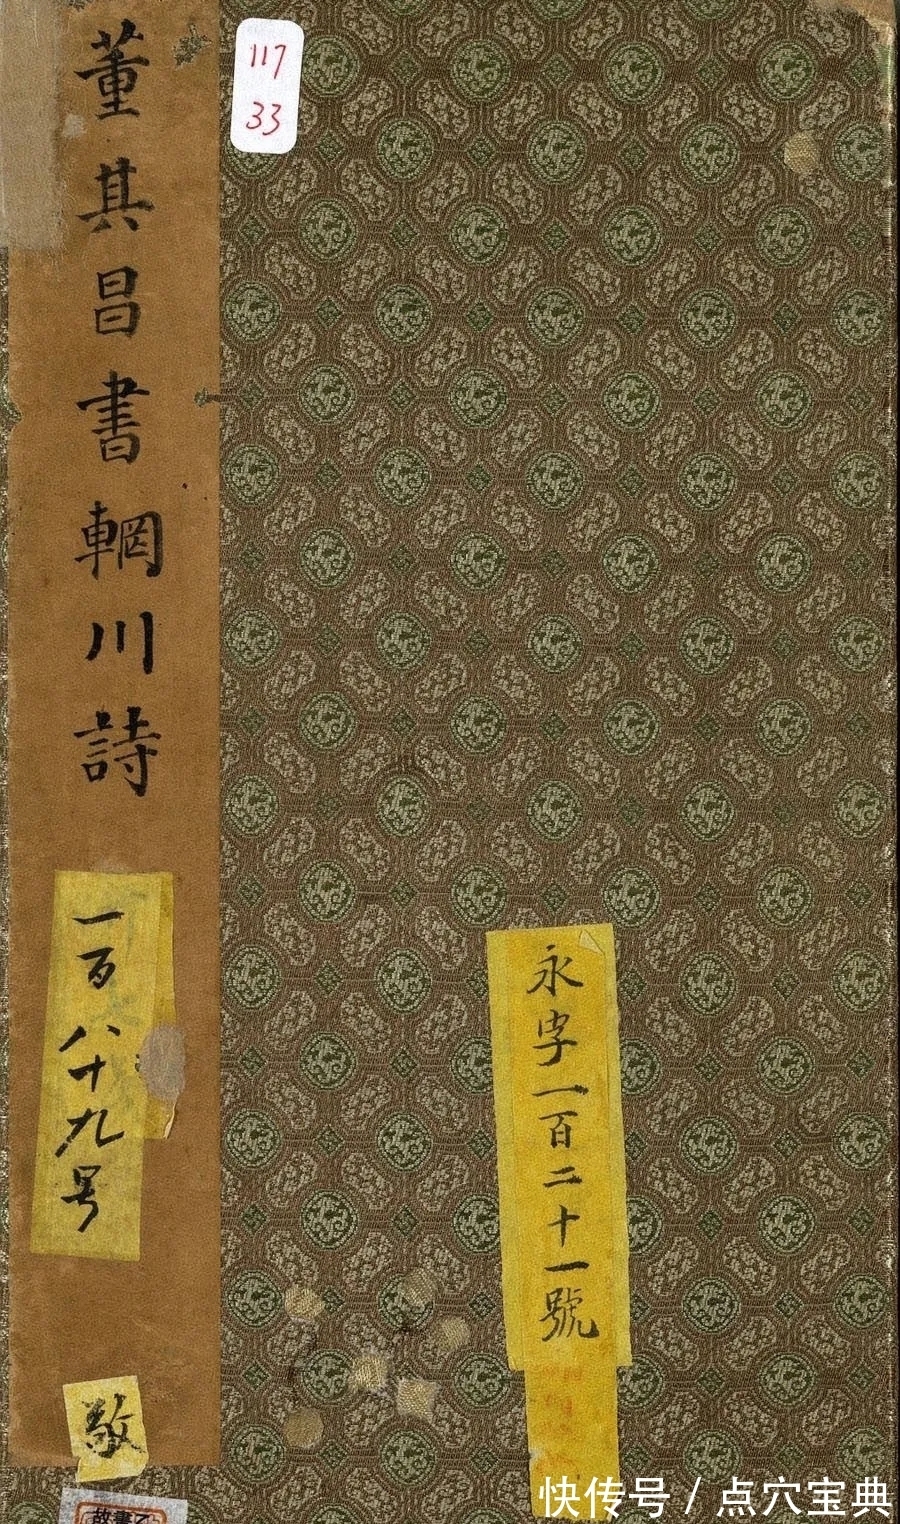 董其昌書輞川詩
117
33
一百八十九号
永字一百二十一號
敬
故書乙
快传号 / 点穴宝典